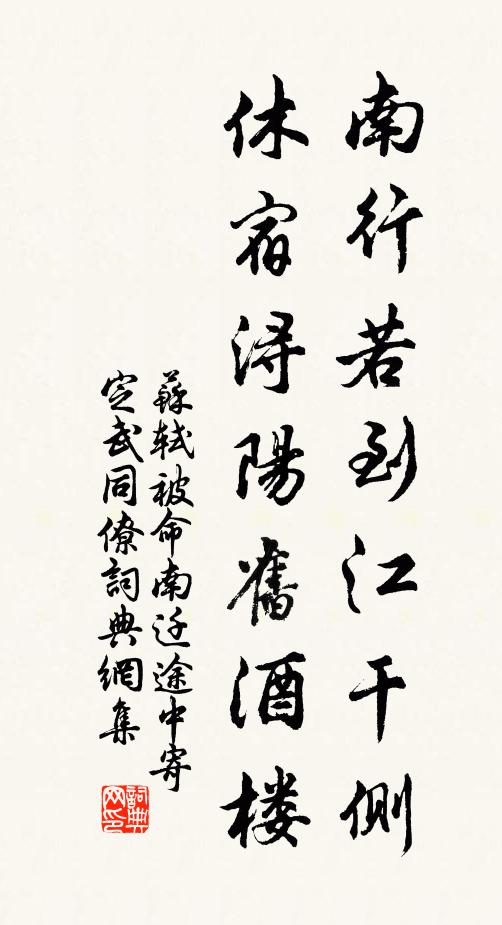 南行若到江干側
休宿浔陽舊酒楼
蘇軾被命南迁途中寄
定武同僚詞典網集
詞典网印